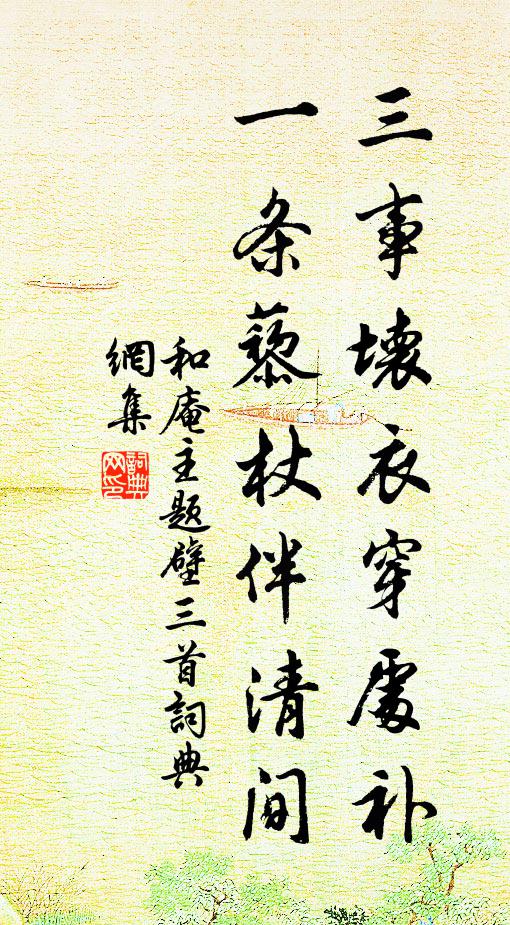 三事壊衣穿處补
一条藜杖伴清间
和庵主题壁三首詞典
網集
詞典
网印